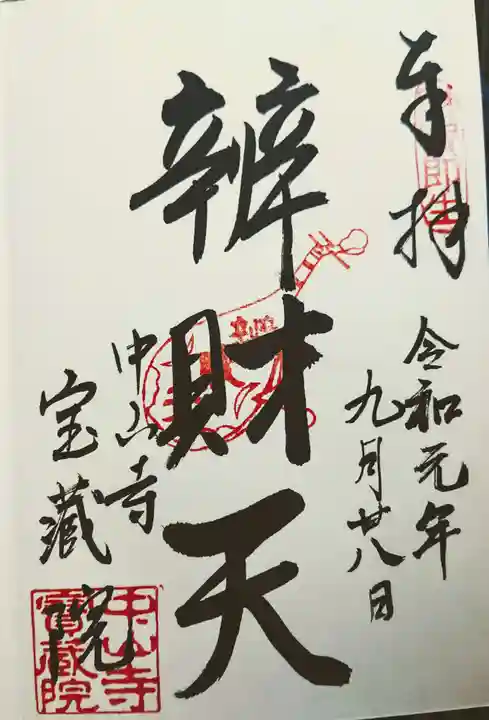 奉拝
令和元年
九月廿八日
辨財天
中山寺
宝蔵院
中山寺
寳蔵院